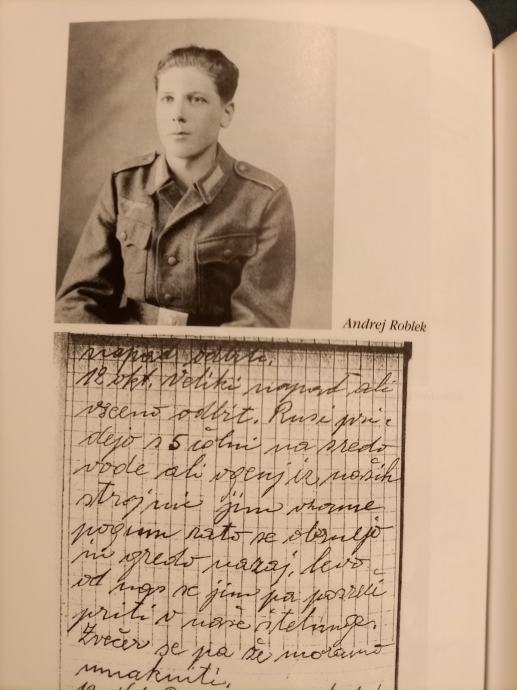 Andrej Roblek
napad odbiti.
12 okt. Veliki napad ali
vseeno odbit. Rusi pri-
dejo s 5 čolni na sredo
vode ali ogenj iz naših
strojnic jim vzame
pogum zato se obrnejo
in gredo nazaj, levo
od nas se jim pa posreči
priti v naše štelunge.
Zvečer se pa že moramo
umakniti.